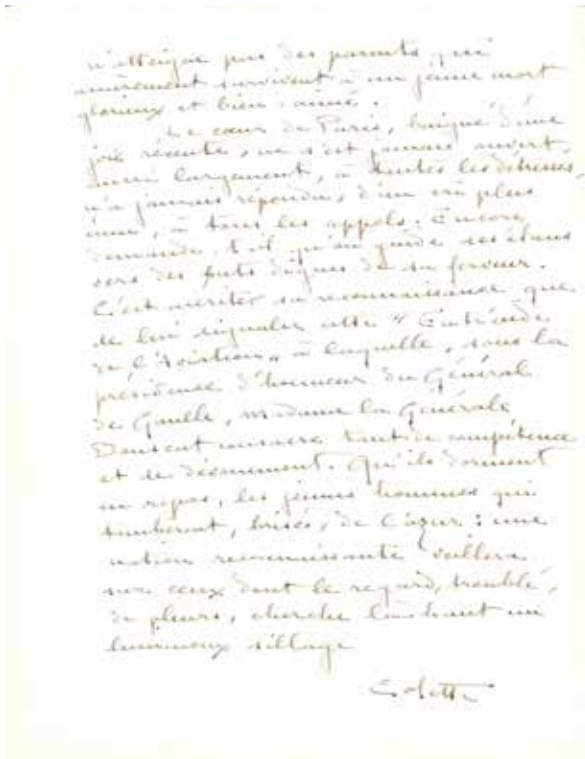 n'atteigne pas des parents qui
amèrement survivent à un jeune mort
glorieux et bien-aimé.
Le cœur de Paris, baigné d'une
joie récente, ne s'est jamais ouvert,
aussi largement, à toutes les détresses,
n'a jamais répondu, d'un cri plus
, à tous les appels. Encore
demande-t-il qu'on guide ses élans
vers des buts dignes de sa ferveur.
C'est mériter sa reconnaissance que
de lui signaler cette "Entr'aide
de l'Aviation" à laquelle, sous la
présidence d'honneur du Général
de Gaulle, Madame la Générale
consacre tant de compétence
et de dévouement. Qu'ils dorment
en repos, les jeunes hommes qui
tombèrent, brisés, de l'azur : une
nation reconnaissante veillera
sur ceux dont le regard, troublé,
de pleurs, cherche là-haut un
lumineux sillage
Colette